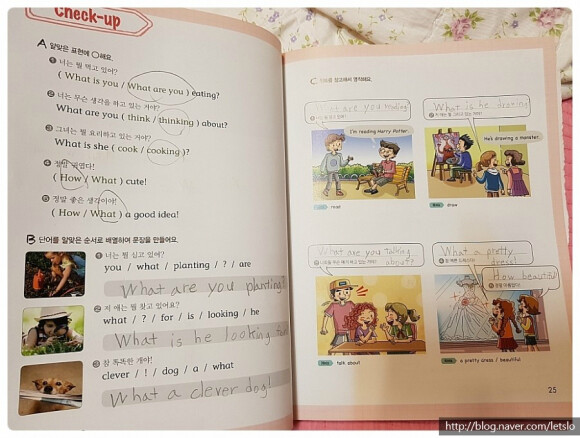 Check-up
A 알맞은 표현에 ○하세요.
1 너는 뭘 먹고 있어?
( What is you / What are you ) eating?
2 너는 무슨 생각을 하고 있는 거야?
What are you ( think / thinking ) about?
3 그녀는 뭘 요리하고 있는 거야?
What is she ( cook / cooking )?
4 정말 귀엽다!
( How / What ) cute!
5 정말 좋은 생각이야!
( How / What ) a good idea!
B 단어를 알맞은 순서로 배열하여 문장을 만들어요.
1 너는 뭘 심고 있어?
you / what / planting / ? / are
What are you planting?
2 저 애는 뭘 찾고 있어요?
what / ? / for / is / looking / he
What is he looking
3 참 똑똑한 개야!
clever / ! / dog / a / what
What a clever dog!
C 참고해서 영작해요.
What are you reading
I'm reading Harry Potter.
read
What is he drating
He's drawing a monster.
draw
What are you talking
about?
talk about
What a pretty
dress!
How beautiful
a pretty dress / beautiful
25
http://blog.naver.com/letslo